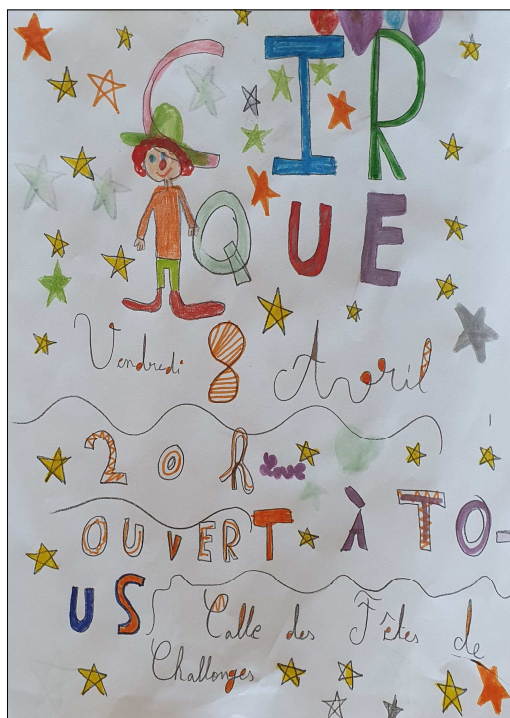 CIR
QUE
Vendredi 8 Avril
20 h love
OUVERT À TO-
US Salle des Fêtes de
Challonges